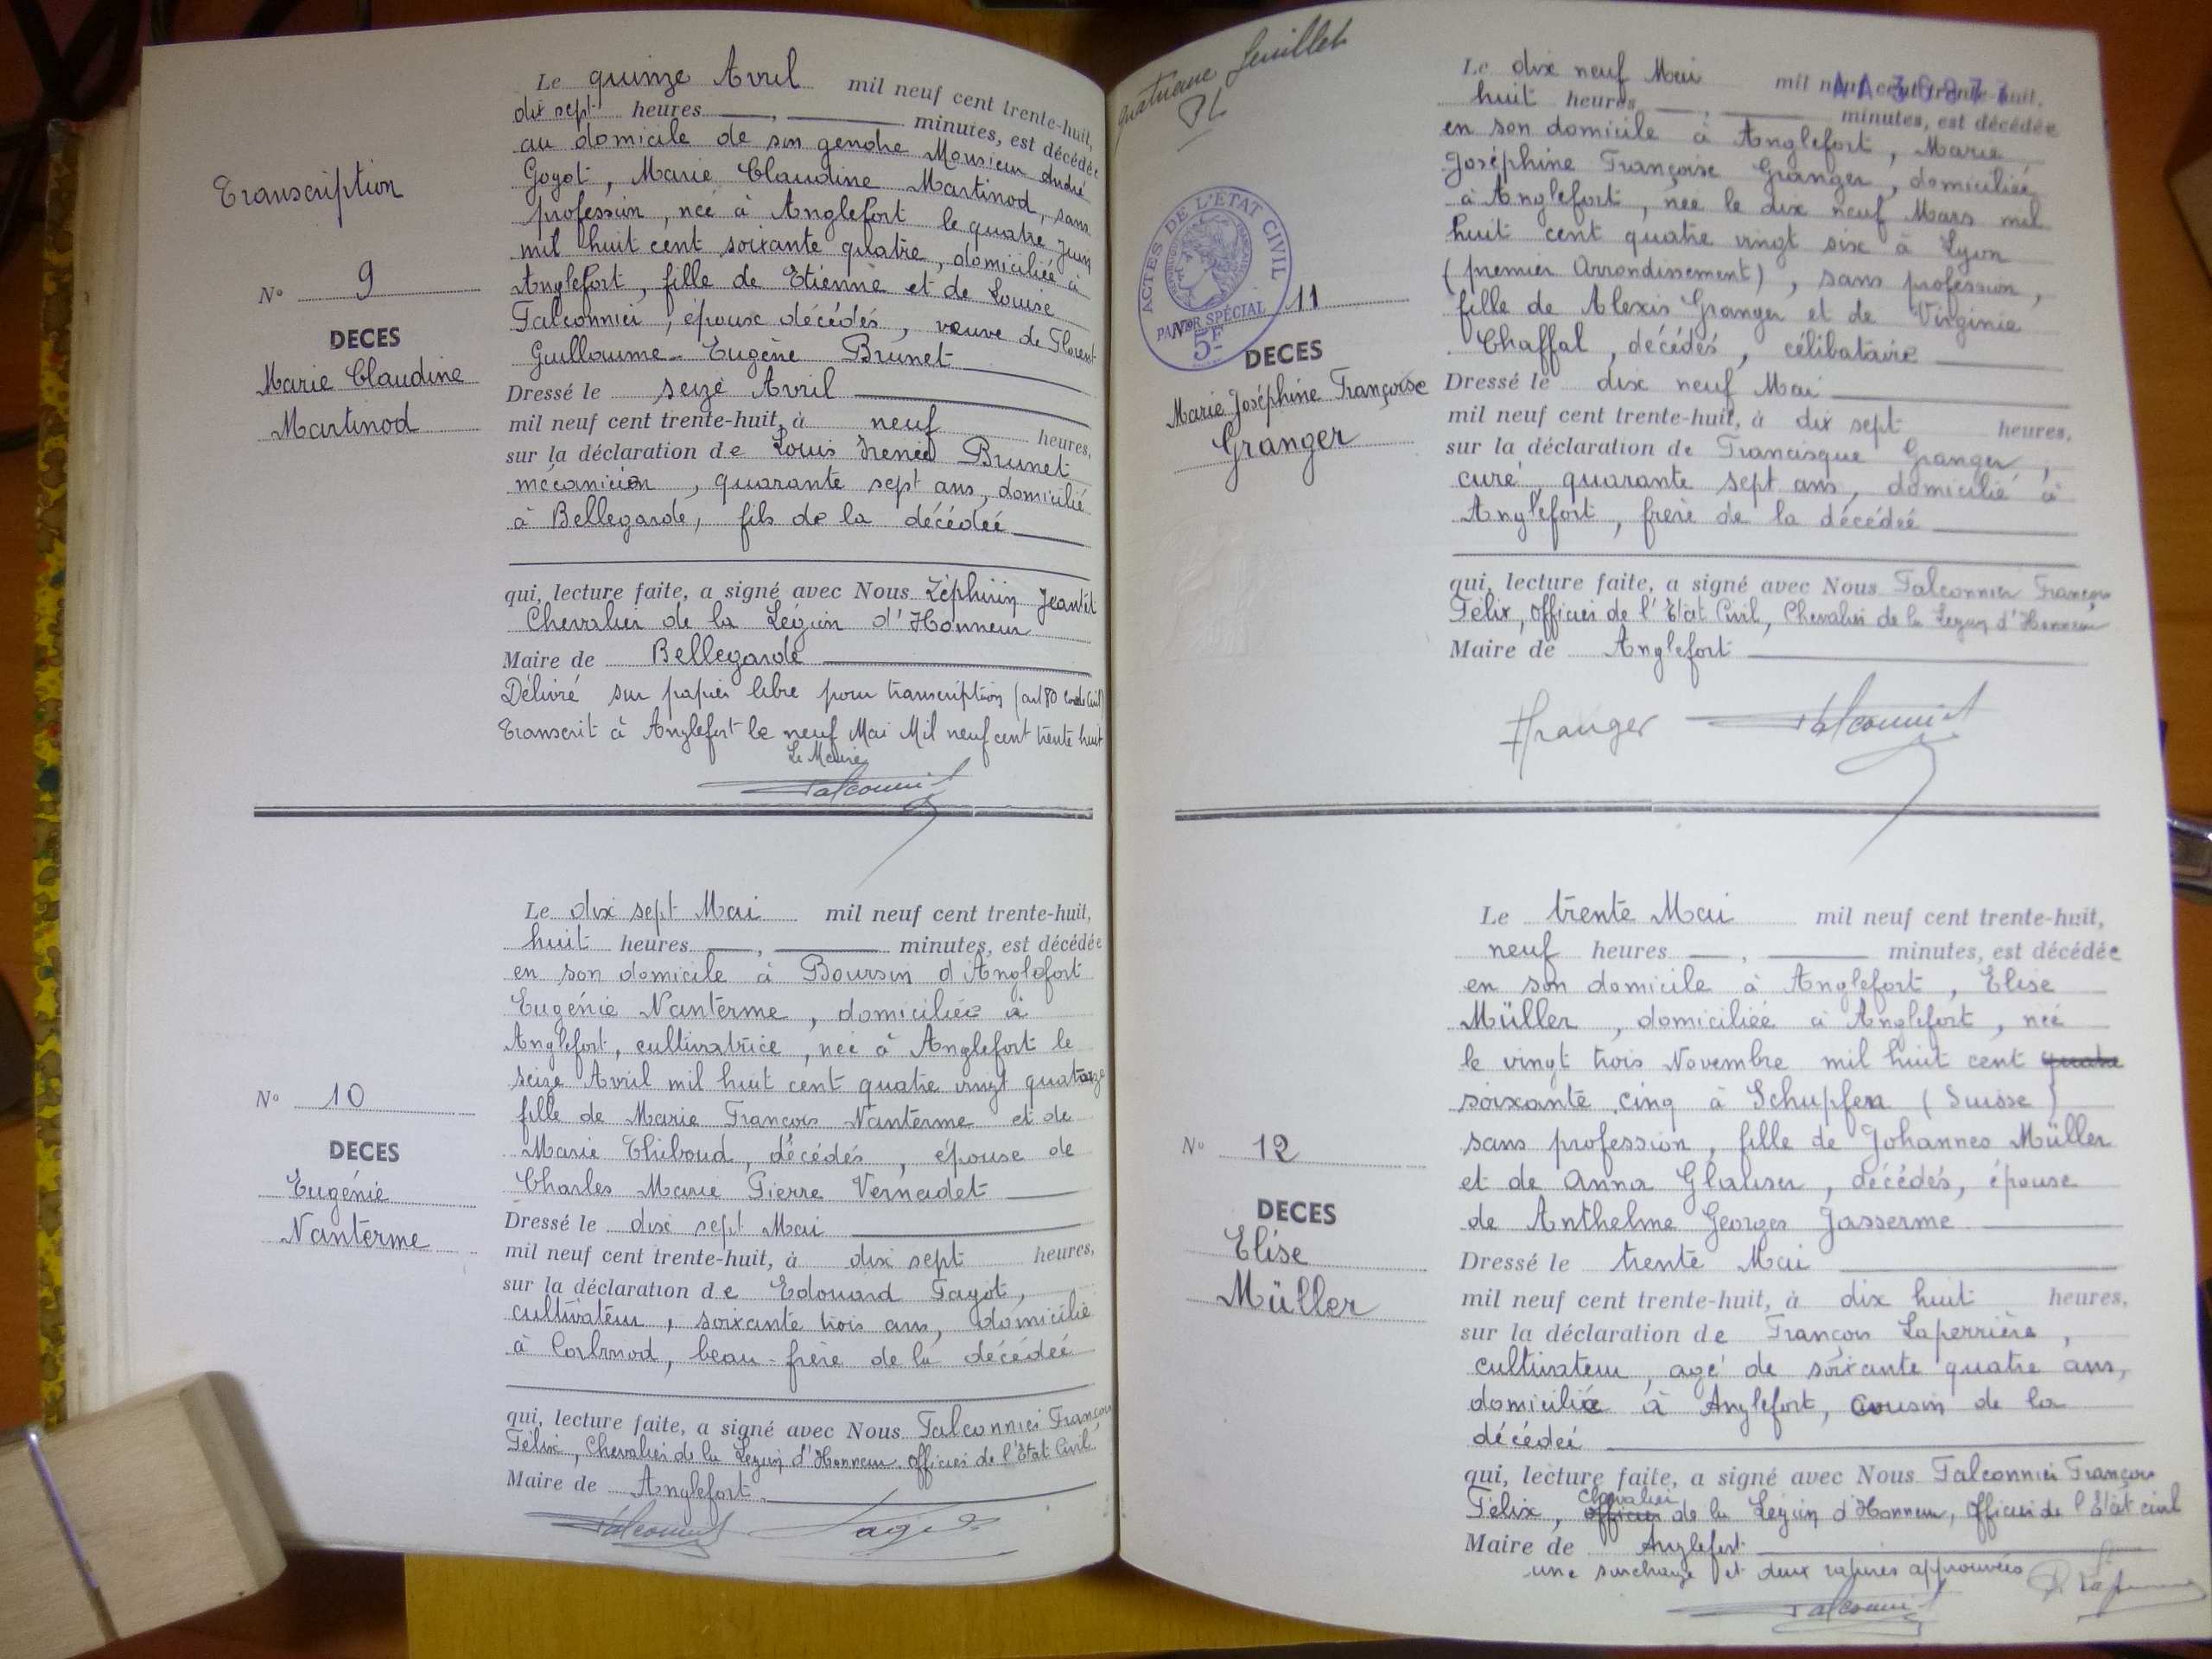 Transcription
N° 9
DECES
Marie Claudine
Martinod
Le quinze Avril mil neuf cent trente-huit,
dix sept heures —, — minutes, est décédée
au domicile de son gendre Monsieur André
Goyot, Marie Claudine Martinod, sans
profession, née à Anglefort le quatre Juin
mil huit cent soixante quatre, domiciliée à
Anglefort, fille de Etienne et de Louise
Falconnier, épouse décédés, veuve de Florent
Guillaume-Eugène Brunet
Dressé le seize Avril
mil neuf cent trente-huit, à neuf heures,
sur la déclaration de Louis Irénée Brunet
mécanicien, quarante sept ans, domicilié
à Bellegarde, fils de la décédée
qui, lecture faite, a signé avec Nous Zéphirin Jeantet
Chevalier de la Légion d'Honneur
Maire de Bellegarde
Délivré sur papier libre pour transcription (art 80 code civil)
Transcrit à Anglefort le neuf Mai Mil neuf cent trente huit
Le Maire
Falconnier
N° 10
DECES
Eugénie
Nanterme
Le dix sept Mai mil neuf cent trente-huit,
huit heures —, — minutes, est décédée
en son domicile à Boursin d'Anglefort
Eugénie Nanterme, domiciliée à
Anglefort, cultivatrice, née à Anglefort le
seize Avril mil huit cent quatre vingt quatorze
fille de Marie François Nanterme et de
Marie Thiboud, décédés, épouse de
Charles Marie Pierre Vernadet
Dressé le dix sept Mai
mil neuf cent trente-huit, à dix sept heures,
sur la déclaration de Edouard Fagot,
cultivateur, soixante trois ans, domicilié
à Corbonod, beau-frère de la décédée
qui, lecture faite, a signé avec Nous Falconnier François
Félix, Chevalier de la Légion d'Honneur Officier de l'Etat Civil
Maire de Anglefort
Falconnier Fagot
quatrième feuillet
N° 11
ACTES DE L'ÉTAT CIVIL
PAPIER SPÉCIAL
5F
DECES
Marie Joséphine Françoise
Granger
Le dix neuf Mai mil neuf cent trente-huit,
huit heures —, — minutes, est décédée
en son domicile à Anglefort, Marie
Joséphine Françoise Granger, domiciliée
à Anglefort, née le dix neuf Mars mil
huit cent quatre vingt six à Lyon
(premier Arrondissement), sans profession,
fille de Alexis Granger et de Virginie
Chaffal, décédés, célibataire
Dressé le dix neuf Mai
mil neuf cent trente-huit, à dix sept heures,
sur la déclaration de Francisque Granger,
curé, quarante sept ans, domicilié à
Anglefort, frère de la décédée
qui, lecture faite, a signé avec Nous Falconnier François
Félix, Officier de l'Etat Civil, Chevalier de la Légion d'Honneur
Maire de Anglefort
FGranger Falconnier
N° 12
DECES
Elise
Müller
Le trente Mai mil neuf cent trente-huit,
neuf heures —, — minutes, est décédée
en son domicile à Anglefort, Elise
Müller, domiciliée à Anglefort, née
le vingt trois Novembre mil huit cent quatre
soixante cinq à Schupfen (Suisse)
sans profession, fille de Johannes Müller
et de Anna Glauser, décédés, épouse
de Anthelme Georges Jasserme
Dressé le trente Mai
mil neuf cent trente-huit, à dix huit heures,
sur la déclaration de François Laperrière,
cultivateur, agé de soixante quatre ans,
domicilié à Anglefort, cousin de la
décédée
qui, lecture faite, a signé avec Nous Falconnier François
Félix, officier Chevalier de la Légion d'Honneur, Officier de l'Etat civil
Maire de Anglefort
une surcharge et deux ratures approuvées
Falconnier